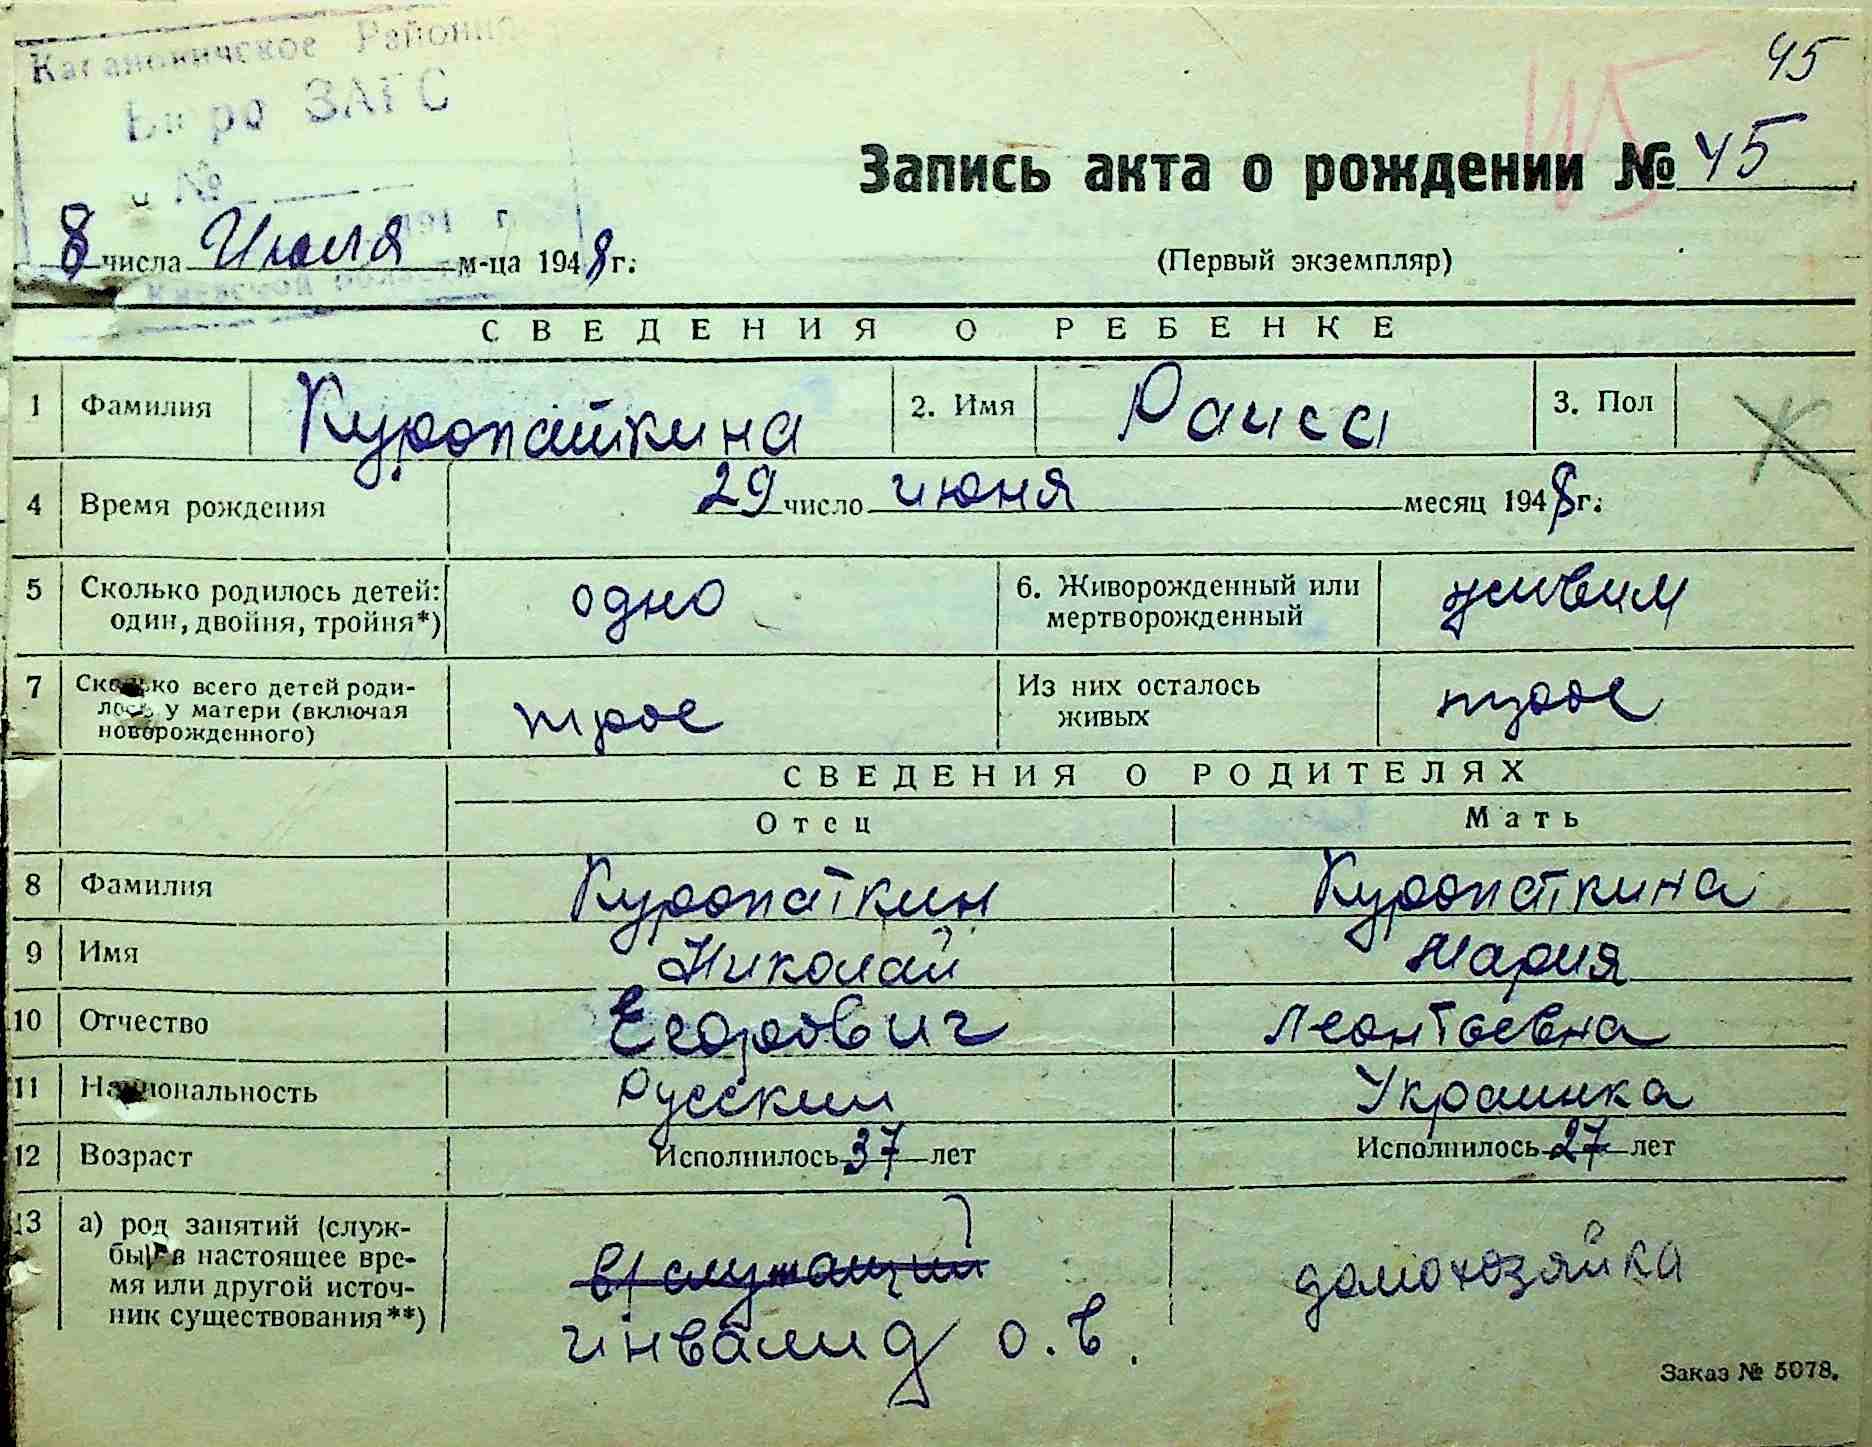 45
Кагановичское Районное
Бюро ЗАГС
№
194 г.
Киевской области
45
Запись акта о рождении № 45
8 числа Июля м-ца 1948 г.
(Первый экземпляр)
СВЕДЕНИЯ О РЕБЕНКЕ
1 Фамилия Куропаткина 2. Имя Раиса 3. Пол Ж
4 Время рождения 29 число июня месяц 1948 г.
5 Сколько родилось детей: один, двойня, тройня*) одно 6. Живорожденный или мертворожденный живим
7 Сколько всего детей роди-
лось у матери (включая
новорожденного) трое Из них осталось живых трое
СВЕДЕНИЯ О РОДИТЕЛЯХ
Отец Мать
8 Фамилия Куропаткин Куропаткина
9 Имя Николай Мария
10 Отчество Егорович Леонтьевна
11 Национальность Русский Украинка
12 Возраст Исполнилось 37 лет Исполнилось 27 лет
13 а) род занятий (служ-
бы) в настоящее вре-
мя или другой источ-
ник существования**)
в/служащий
инвалид о.в.
домохозяйка
Заказ № 5078.